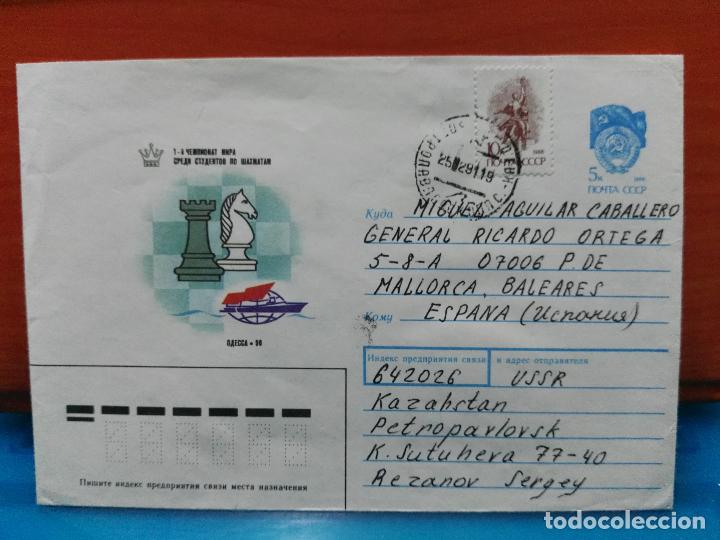 1-й ЧЕМПИОНАТ МИРА
СРЕДИ СТУДЕНТОВ ПО ШАХМАТАМ
ОДЕССА • 90
10к 1988
ПОЧТА СССР
5к 1988
ПОЧТА СССР
Куда MIGUEL AGUILAR CABALLERO
GENERAL RICARDO ORTEGA
5-8-A 07006 P. DE
MALLORCA, BALEARES
Кому ESPANA (Испания)
Индекс предприятия связи и адрес отправителя
642026 USSR
Kazahstan
Petropavlovsk
K. Sutuheva 77-40
Rezanov Sergey
Пишите индекс предприятия связи места назначения
todocoleccion.net